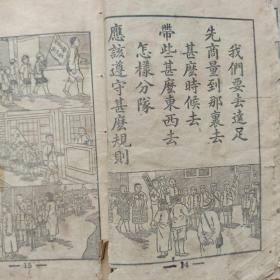 我們要去遠足
先商量到那裏去
甚麼時候去
帶些甚麼東西去
怎樣分隊
應該遵守甚麼規則
14
15